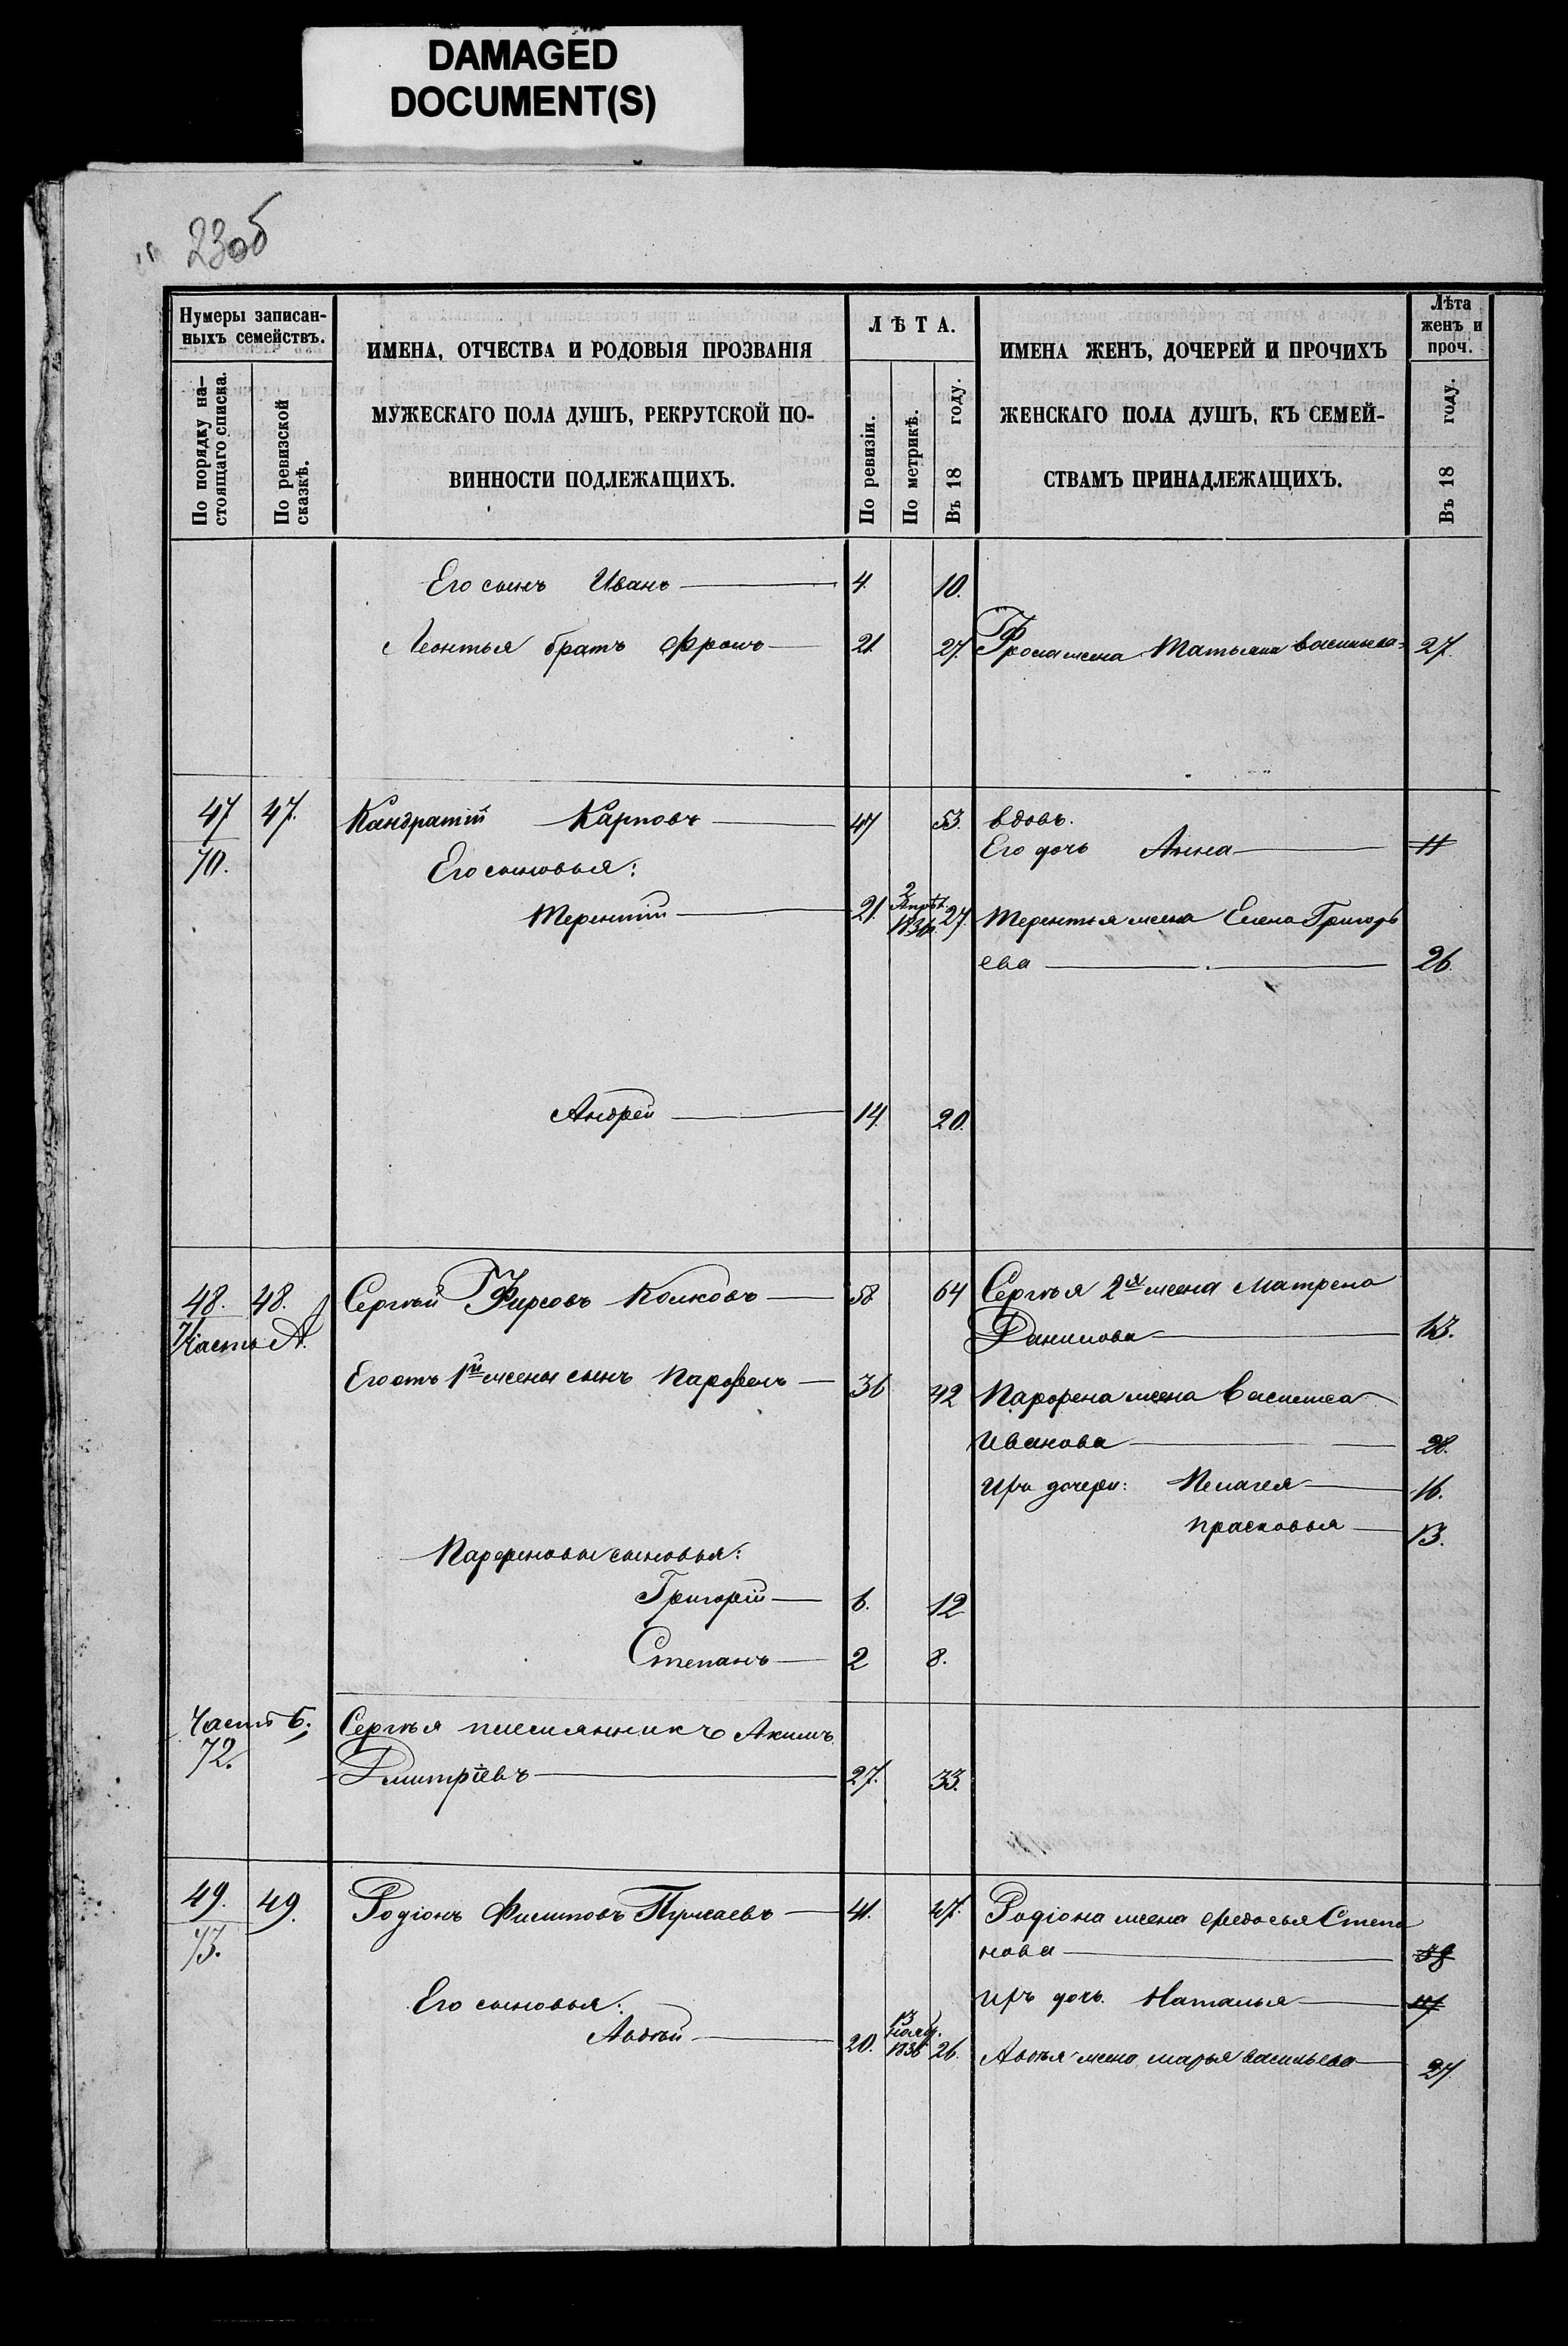 DAMAGED
DOCUMENT(S)
23об
Нумеры записан-
ныхъ семействъ.
По порядку на-
стоящаго списка.
По ревизской
сказкѣ.
ИМЕНА, ОТЧЕСТВА И РОДОВЫЯ ПРОЗВАНІЯ
МУЖЕСКАГО ПОЛА ДУШЪ, РЕКРУТСКОЙ ПО-
ВИННОСТИ ПОДЛЕЖАЩИХЪ.
ЛѢТА.
По ревизіи.
По метрикѣ.
Въ 18 году.
ИМЕНА ЖЕНЪ, ДОЧЕРЕЙ И ПРОЧИХЪ
ЖЕНСКАГО ПОЛА ДУШЪ, КЪ СЕМЕЙ-
СТВАМЪ ПРИНАДЛЕЖАЩИХЪ.
Лѣта
женъ и
проч.
Въ 18 году.
Его сынъ Иванъ 4. 10.
Леонтья братъ Фролъ 21. 27. Фрола жена Татьяна Васильева 27.
47 47. Кандратій Карповъ 47 53. вдовъ.
70. Его дочь Анна 11
Его сыновья:
Терентій 21. 2 Апрѣл. 1836. 27. Терентья жена Елена Григорь
ева 26.
Андрей 14. 20.
48. 48. Сергѣй Фирсовъ Колковъ 58 64 Сергѣя 2я жена Матрена
71 Часть А. Данилова
Его отъ 1й жены сынъ Парфенъ 36 42 Парфена жена Василиса
Иванова 28.
Ихъ дочери: Пелагея 16.
Прасковья 13.
Парфеновы сыновья:
Григорій 6. 12
Степанъ 2 8.
Часть Б. Сергѣя племянникъ Акимъ
72. Дмитріевъ 27. 33.
49. 49. Родіонъ Филиповъ 41. 47. Родіона жена Федосья Степа
73. нова
Ихъ дочь Наталья
Его сыновья:
Авдѣй 20. 13 1836 26. Авдѣя жена Марья Васильева 27